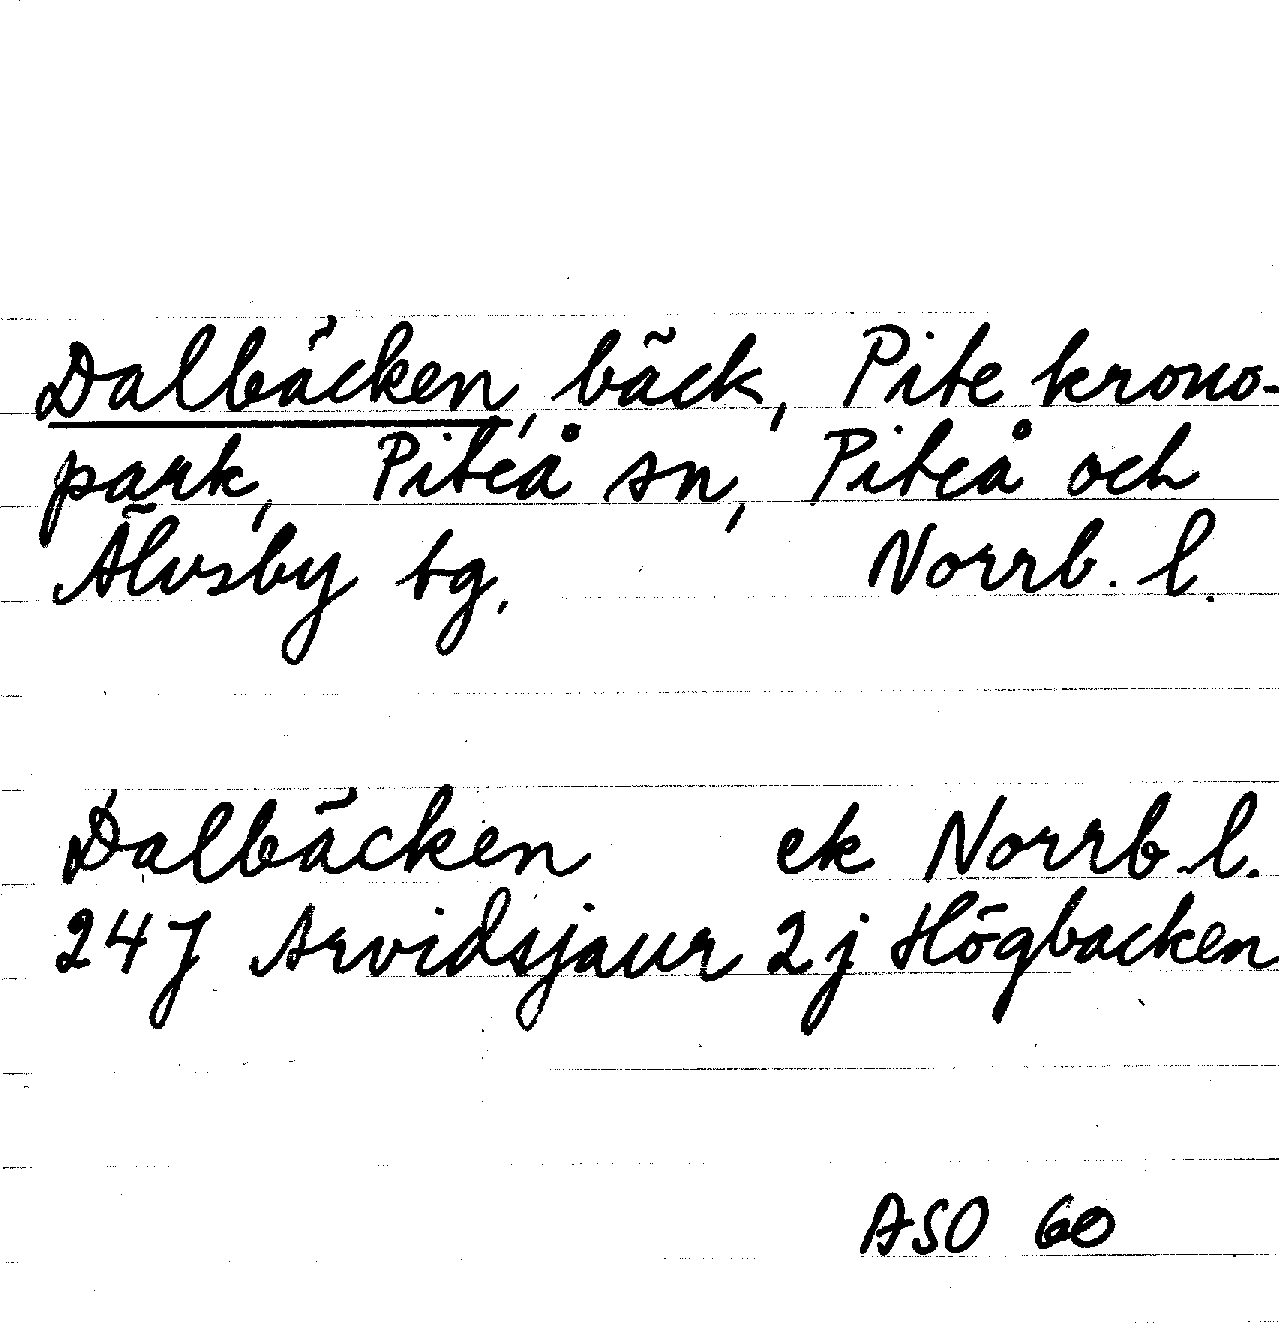 Dalbäcken, bäck, Pite krono-
park, Piteå sn, Piteå och
Älvsby tg, Norrb. l.
Dalbäcken ek Norrb. l.
24J Arvidsjaur 2j Högbacken
ASO 60